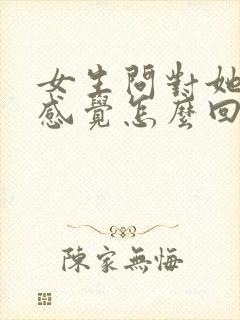 女生問對她
感覺怎麼回
陳家無悔